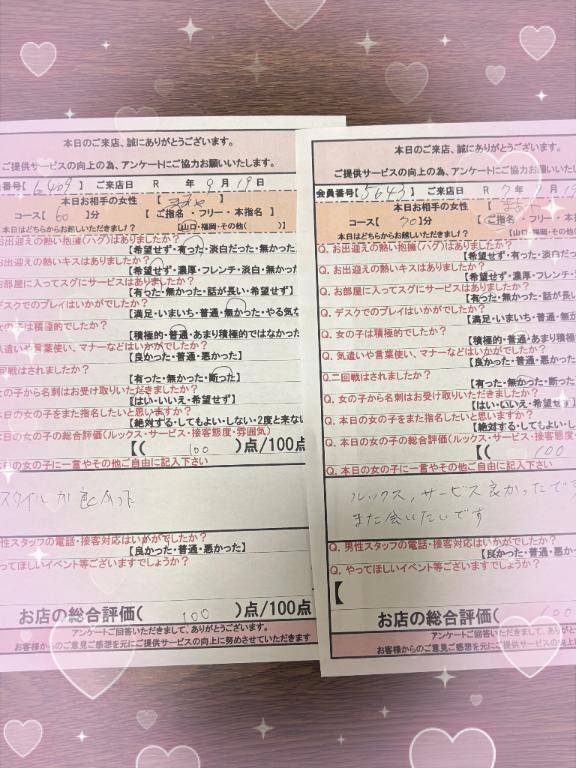 本日のご来店、誠にありがとうございます。
ご提供サービスの向上の為、アンケートにご協力お願いいたします。
番号【6409】 ご来店日 R 年 9月19日
本日お相手の女性 【 】
コース【60 】分 【 ご指名・フリー・本指名】
本日はどちらからお越しいただきましたか? 【山口・福岡・その他( )】
お出迎えの熱い抱擁(ハグ)はありましたか?
【希望せず・有った・淡白だった・無かった
お出迎えの熱いキスはありましたか?
【希望せず・濃厚・フレンチ・淡白・無かった
お部屋に入ってスグにサービスはありましたか?
【有った・無かった・話が長い・希望せず】
デスクでのプレイはいかがでしたか?
【満足・いまいち・普通・無かった・やる気な
女の子は積極的でしたか?
【積極的・普通・あまり積極的ではなかった
気遣いや言葉使い、マナーなどはいかがでしたか?
【良かった・普通・悪かった】
回戦はされましたか?
【有った・無かった・断った】
女の子から名刺はお受け取りいただきましたか?
【はい・いいえ・希望せず】
本日の女の子をまた指名したいと思いますか?
【絶対する・してもよい・しない・2度と来ない
本日の女の子の総合評価(ルックス・サービス・接客態度・雰囲気)
【( 100 )点/100点
本日の女の子に一言やその他ご自由に記入下さい
スタイルが良かった
男性スタッフの電話・接客対応はいかがでしたか?
【良かった・普通・悪かった】
やってほしいイベント等ございますでしょうか?
お店の総合評価( 100 )点/100点
アンケートご回答いただきまして、ありがとうございます。
お客様からのご意見ご感想を元にご提供サービスの向上に努めさせていただきます
本日のご来店、誠にありがとうございます。
ご提供サービスの向上の為、アンケートにご協力お願いいた
会員番号【5643】 ご来店日 R 7年 月19
本日お相手の女性 【
コース【 70 】分 【ご指名・フリー・本
本日はどちらからお越しいただきましたか? 【山口・福岡・その他(
Q. お出迎えの熱い抱擁(ハグ)はありましたか?
【希望せず・有った・淡白だ
Q. お出迎えの熱いキスはありましたか?
【希望せず・濃厚・フレンチ・
Q. お部屋に入ってスグにサービスはありましたか?
【有った・無かった・話が長
Q. デスクでのプレイはいかがでしたか?
【満足・いまいち・普通・無か
Q. 女の子は積極的でしたか?
【積極的・普通・あまり積極
Q. 気遣いや言葉使い、マナーなどはいかがでしたか?
【良かった・普通・悪
Q.二回戦はされましたか?
【有った・無かった・断っ
Q. 女の子から名刺はお受け取りいただきましたか?
【はい・いいえ・希望せ
Q. 本日の女の子をまた指名したいと思いますか?
【絶対する・してもよい・し
Q. 本日の女の子の総合評価(ルックス・サービス・接客態度・
【( 100
Q. 本日の女の子に一言やその他ご自由に記入下さい
ルックス,サービス良かったです
また会いたいです
Q. 男性スタッフの電話・接客対応はいかがでしたか?
【良かった・普通・悪
Q. やってほしいイベント等ございますでしょうか?
【
お店の総合評価( 100
アンケートご回答いただきまして、ありがとうござい
お客様からのご意見ご感想を元にご提供サービスの向上に努め